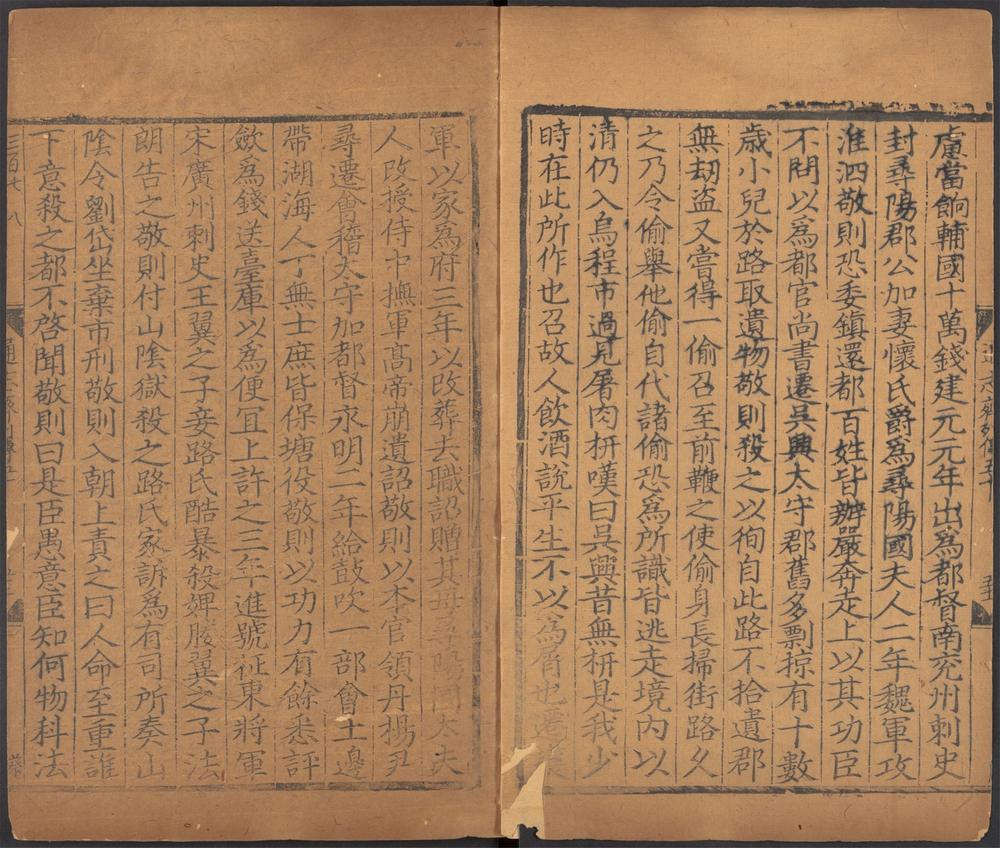 慮當餉輔國十萬錢建元元年出為都督南兖州刺史
封尋陽郡公加妻懷氏爵為尋陽國夫人二年魏軍攻
淮泗敬則恐委鎮還都百姓皆辦嚴奔走上以其功臣
不問以為都官尚書遷吳興太守郡舊多剽掠有十數
歲小兒於路取遺物敬則殺之以徇自此路不拾遺郡
無刼盗又嘗得一偷召至前鞭之使偷身長掃街路久
之乃令偷舉他偷自代諸偷恐為所識皆逃走境內以
清仍入烏程市過見屠肉枅嘆曰吳興昔無枅是我少
時在此所作也召故人飲酒說平生不以為屑也遷
軍以家為府三年以改葬去職詔贈其母尋陽國太夫
人改授侍中撫軍髙帝崩遺詔敬則以本官領丹楊尹
尋遷會稽太守加都督永明二年給鼓吹一部會土邊
帶湖海人丁無士庶皆保塘役敬則以功力有餘悉評
歛為錢送臺庫以為便宜上許之三年進號征東將軍
宋廣州刺史王翼之子妾路氏酷暴殺婢媵翼之子法
朗告之敬則付山陰獄殺之路氏家訴為有司所奏山
陰令劉岱坐棄市刑敬則入朝上責之曰人命至重誰
下意殺之都不啓聞敬則曰是臣愚意臣知何物科法
三百七八